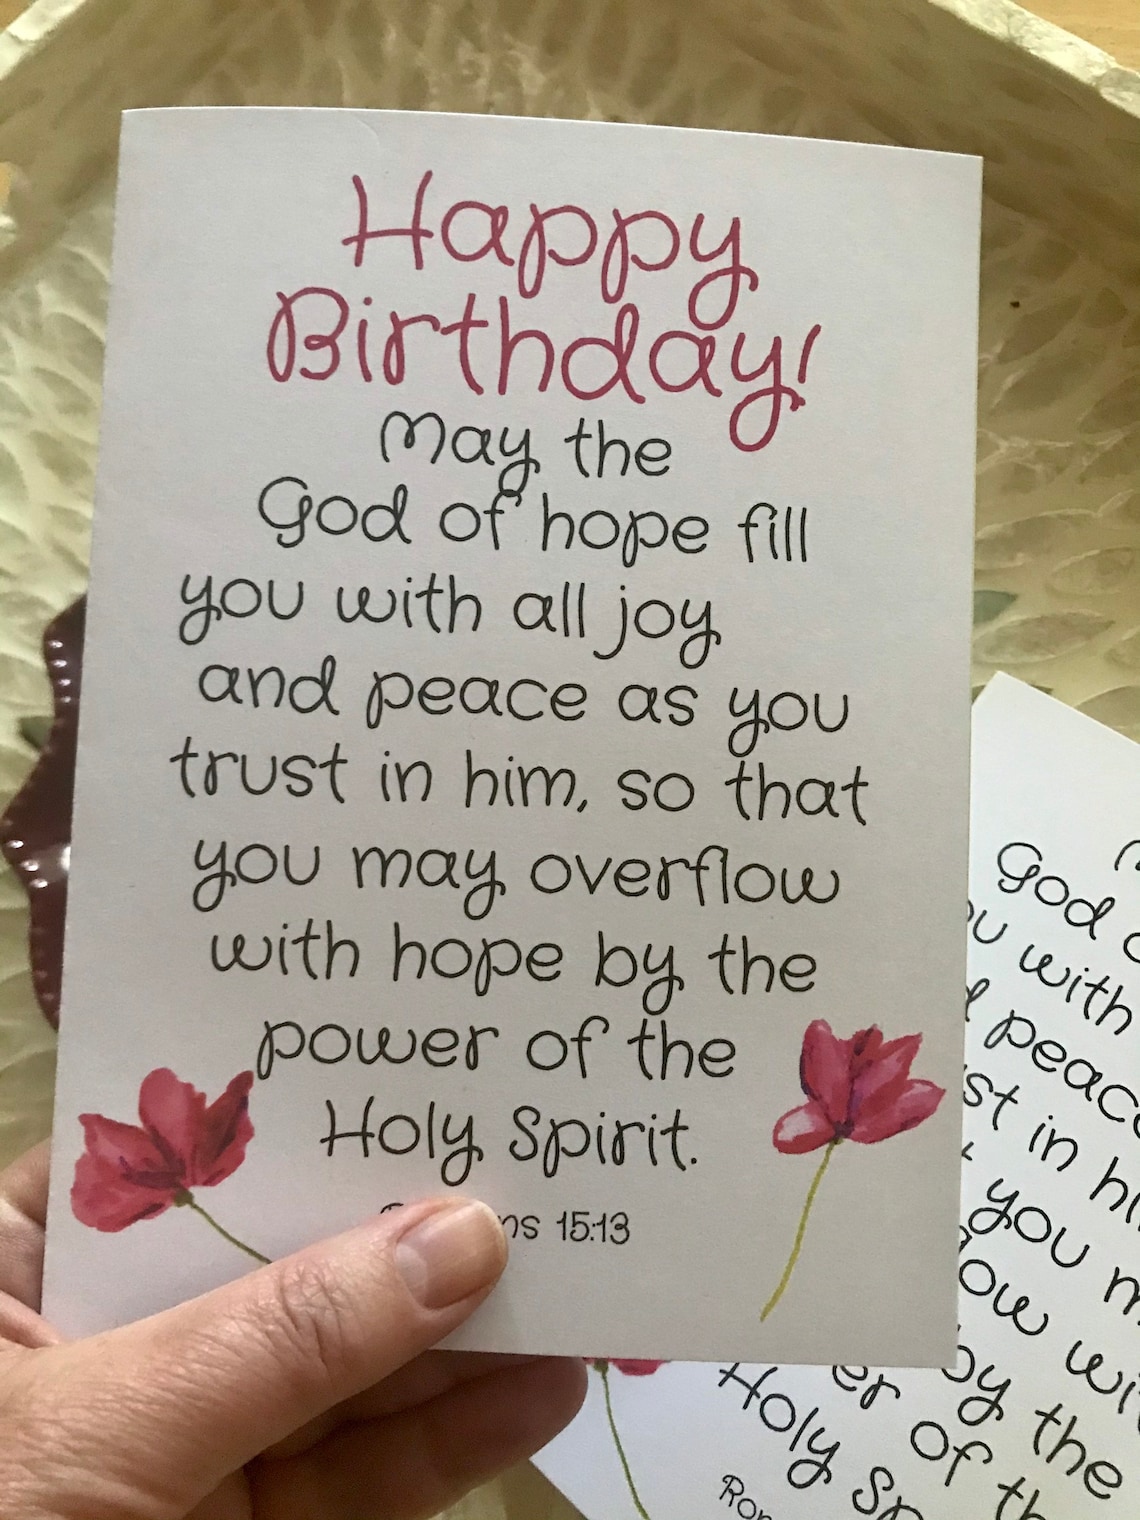 Happy
Birthday!
May the
God of hope fill
you with all joy
and peace as you
trust in him, so that
you may overflow
with hope by the
power of the
Holy Spirit.
15:13
God
with
peace
in
you
by the
of
Holy